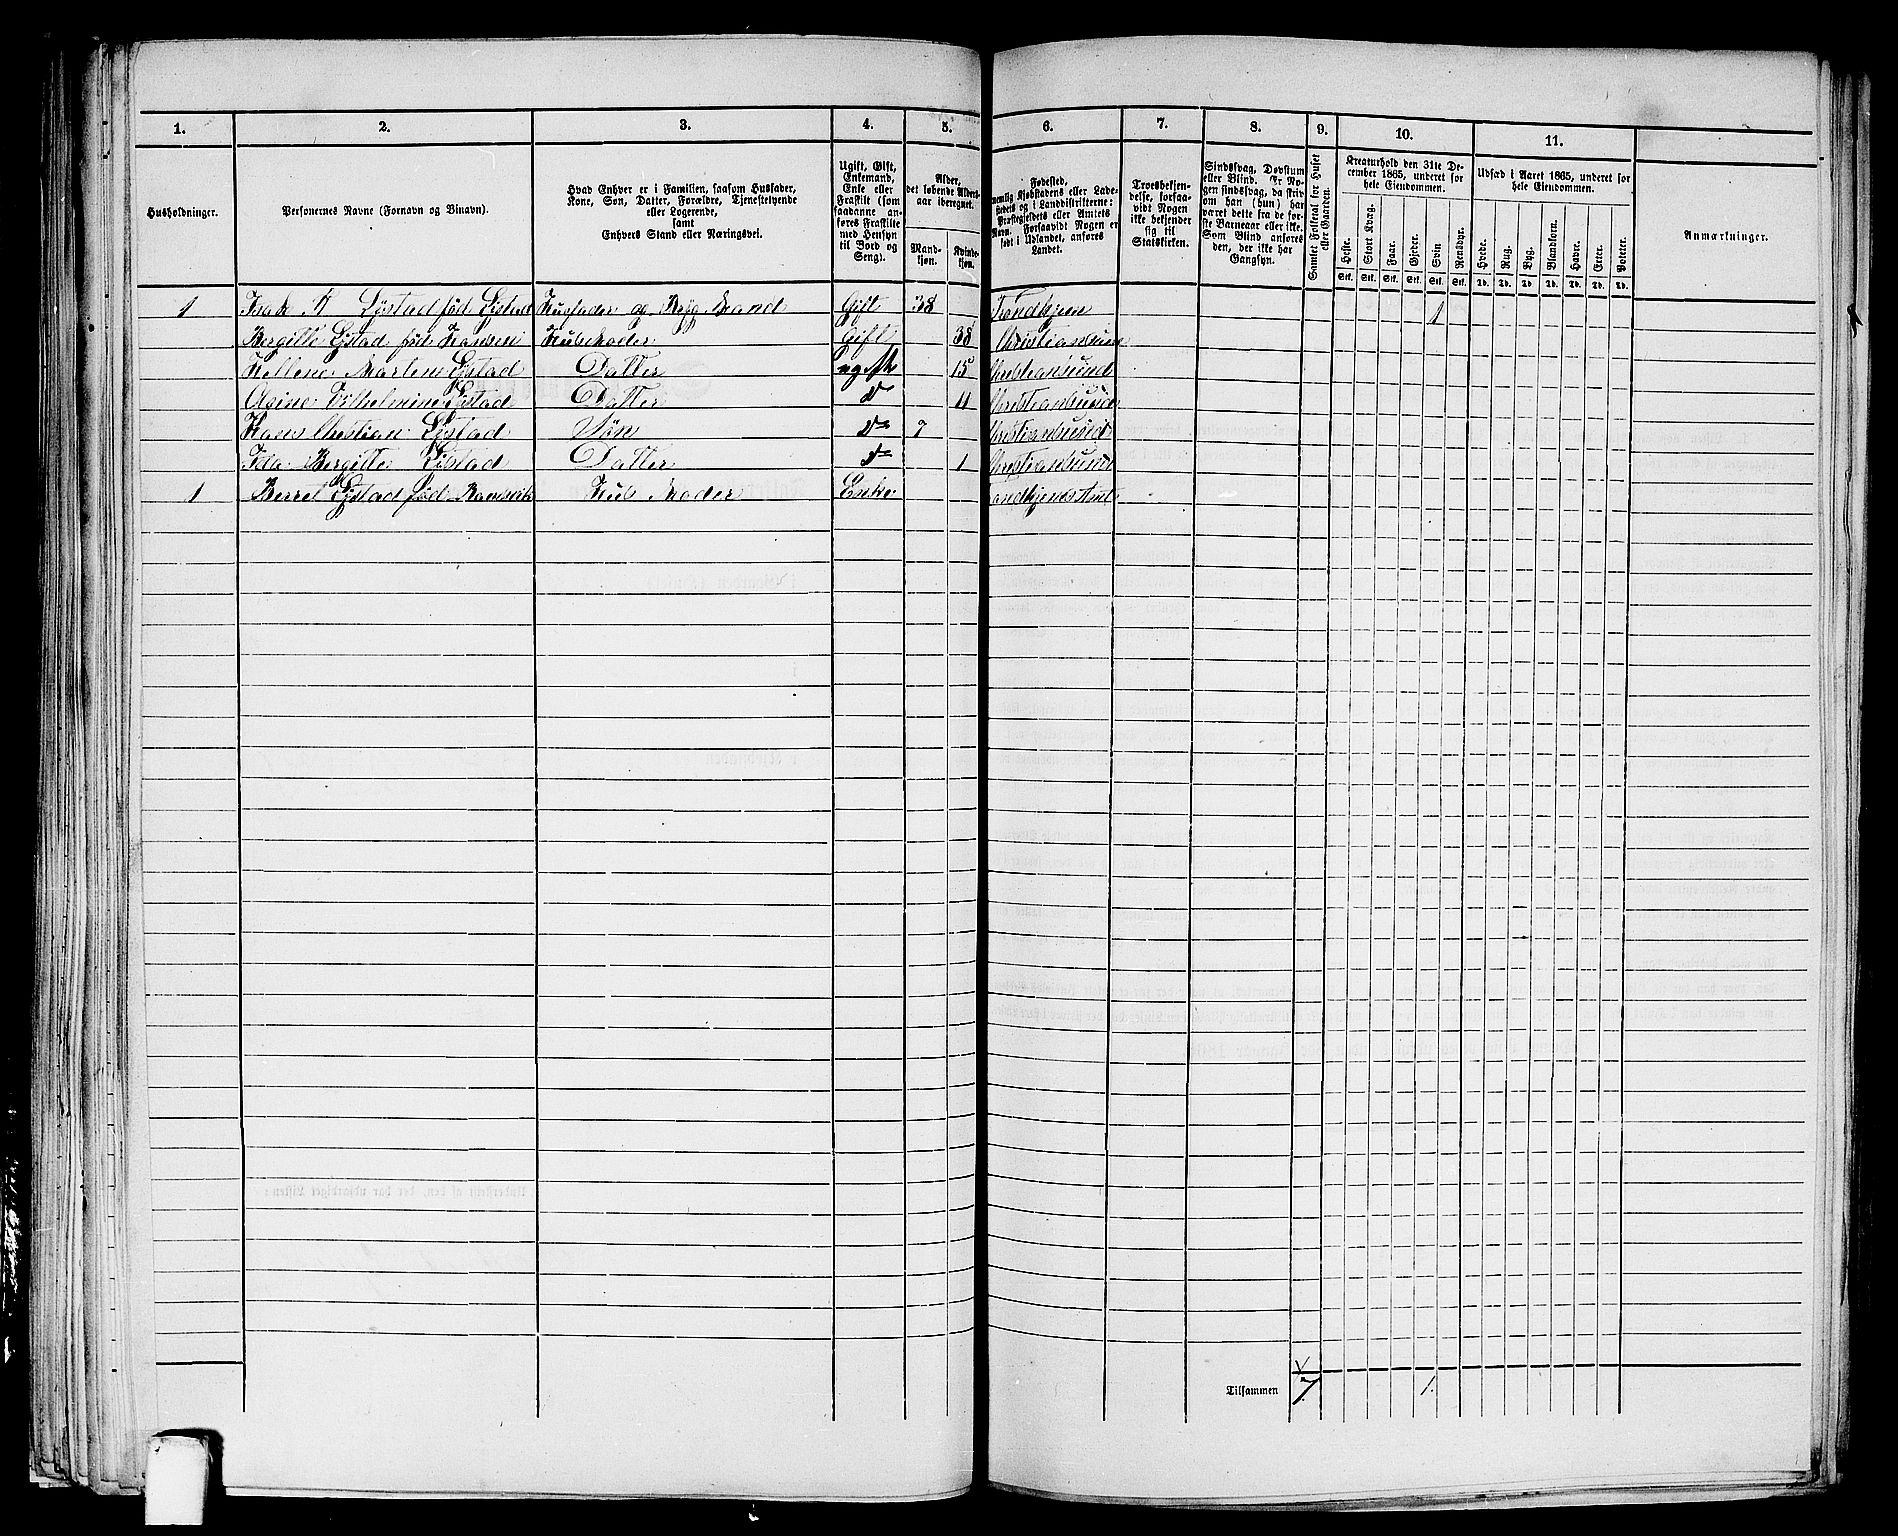 1. 2. 3. 4. 5. 6. 7. 8. 9. 10. 11.
Husholdninger.
Personernes Navne (Fornavn og Binavn).
Hvad Enhver er i Familien, saasom Husfader,
Kone, Søn, Datter, Forældre, Tjenestetyende
eller Logerende,
samt
Enhvers Stand eller Næringsvei.
Ugift, Gift,
Enkemand,
Enke eller
Fraskilt (som
saadanne an-
føres Fraskilte
med Hensyn
til Bord og
Seng).
Alder,
det løbende Alders-
aar iberegnet.
Mand-
kjøn.
Kvinde-
kjøn.
Fødested,
nemlig Kjøbstadens eller Lade-
stedets og i Landdistrikterne:
Præstegjeldets eller Amtets
Navn. Forsaavidt Nogen er
født i Udlandet, anføres
Landet.
Troesbekjen-
delse, forsaa-
vidt Nogen
ikke bekjender
sig til
Statskirken.
Sindssvag, Døvstum
eller Blind. Er No-
gen sindssvag, da skriv
om han (hun) har
været dette fra de før-
ste Barneaar eller ikke.
Som Blind anføres
den, der ikke har
Gangsyn.
Samlet Folketal for Huset
eller Gaarden.
Kreaturhold den 31te De-
cember 1865, underet for
hele Eiendommen.
Heste. Stort Kvæg. Faar. Gjeder. Svin Rensdyr.
Stk. Stk. Stk. Stk. Stk. Stk.
Udsæd i Aaret 1865, underet for
hele Eiendommen.
Hvede. Rug. Byg. Blandkorn. Havre. Erter. Poteter.
Td. Td. Td. Td. Td. Td. Td.
Anmærkninger.
1 Isak Lystad fød Lystad Husfader og Mand Gift 38 Trondhjem 1
Bergitte Lystad fød Hansen Gift 38 Christiansund
Hellene Martine Lystad Datter ugift 15 Christiansund
Vilhelmine Lystad Datter do 11 Christiansund
Hans Christian Lystad Søn do 7 Christiansund
Ida Bergitte Lystad Datter do 1 Christiansund
1 Berret Lystad fød Hus Moder Enke Trondhjems Amt
Tilsammen 7 1.